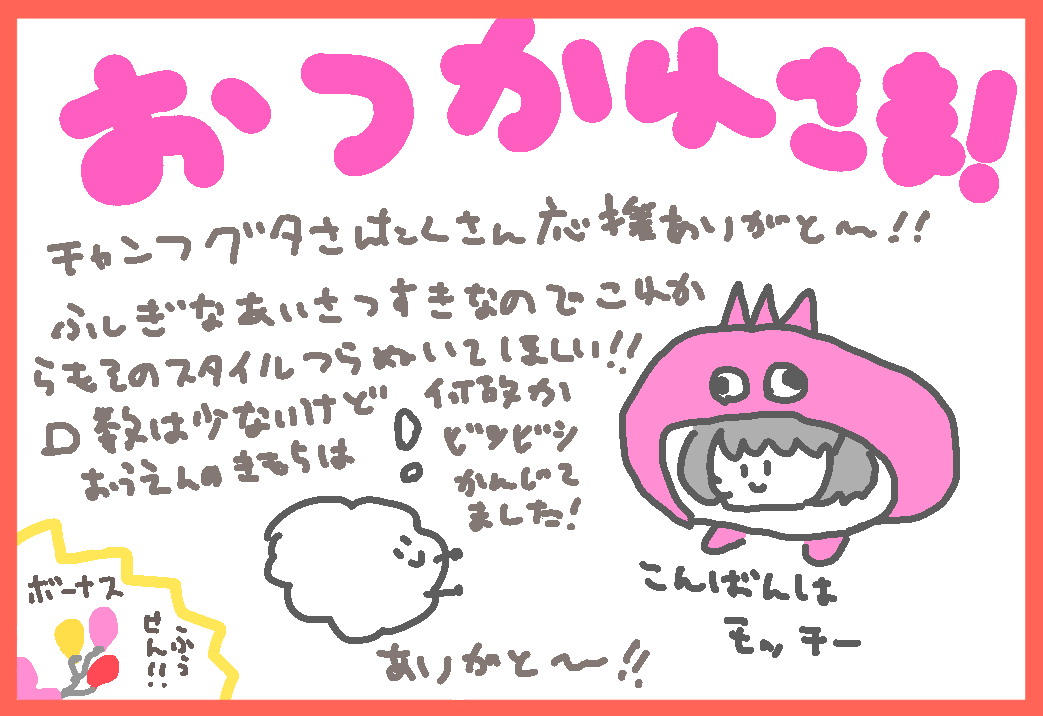 おつかれさま!
チャンフグタさんたくさん応援ありがと〜!!
ふしぎなあいさつすきなのでこれか
らもそのスタイルつらぬいてほしい!!
口数は少ないけど
おうえんのきもちは
何故か
ビシビシ
かんじて
ました!
こんばんは
モッチー
ボーナス
ふう
せん!!
ありがと〜!!